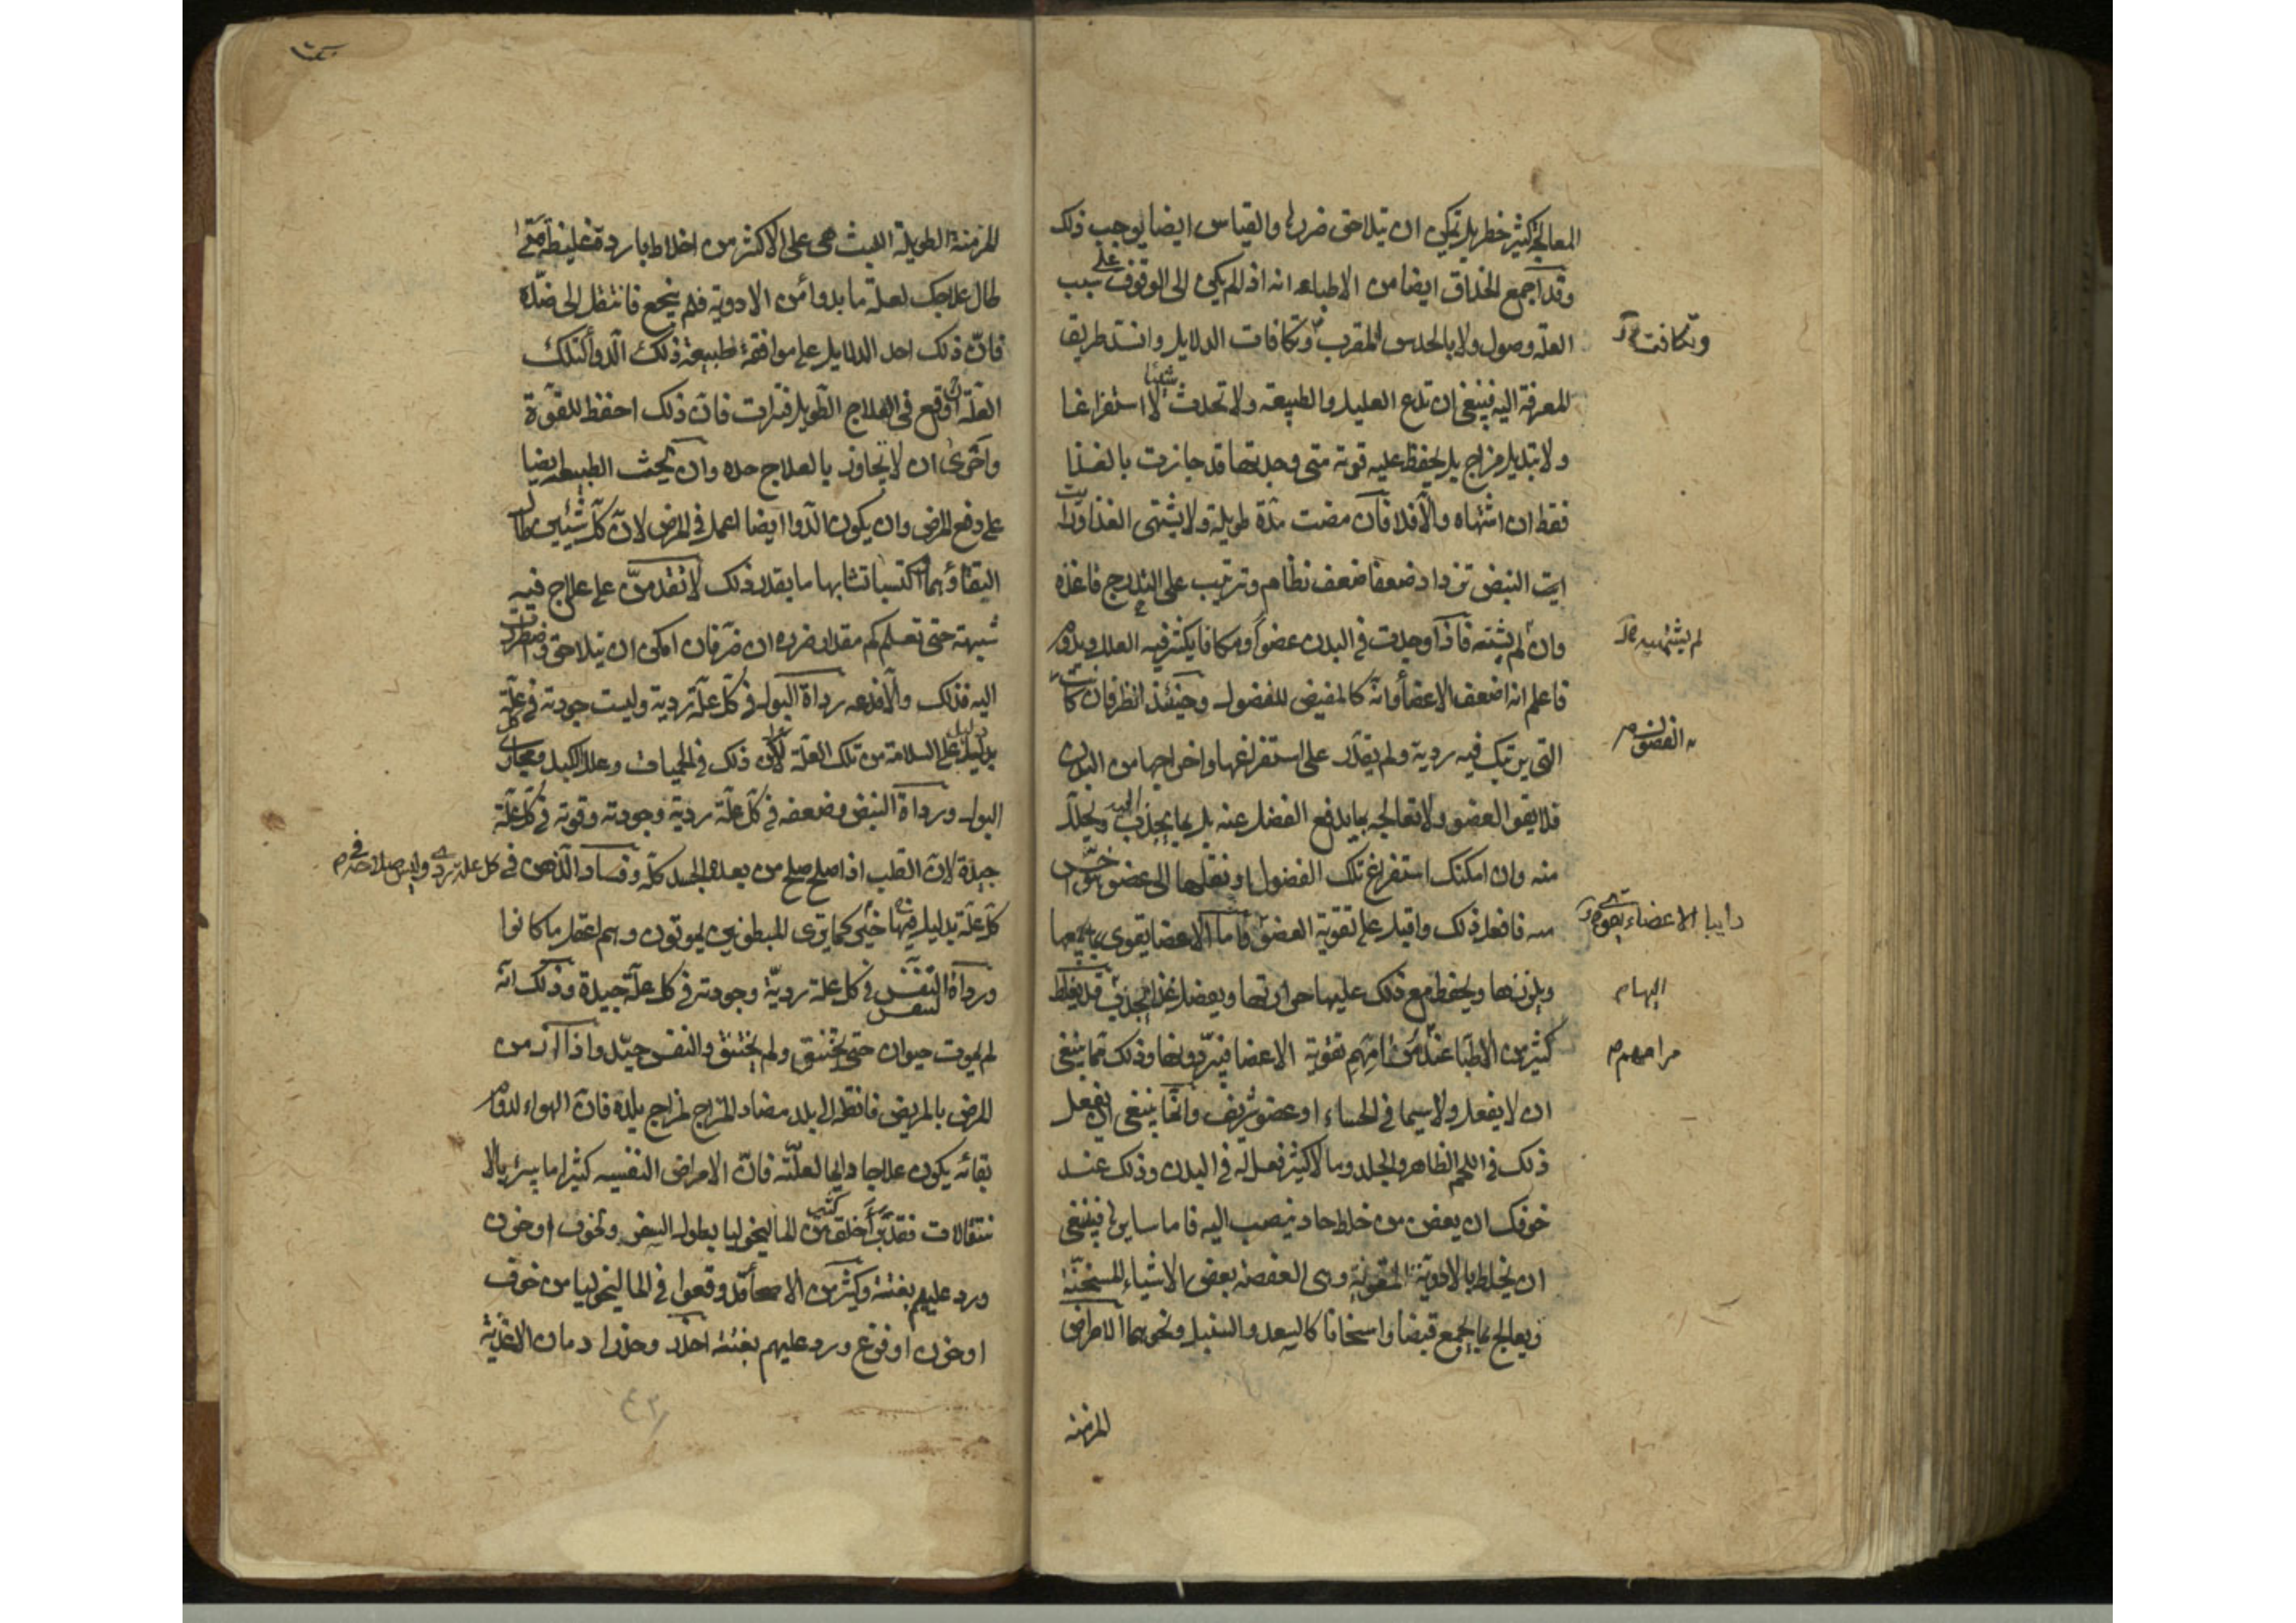 المعالجة كثير خطر بل تمكن ان يتلاحق ضررها والقياس ايضا يوجب ذلك
وقد اجمع الحذاق ايضا من الاطباء انه اذا لم يكن الى الوقوف على سبب
العلة وصول ولا بالحدس المقرب وتكافات الدلايل وانسد طريق
وتكافت
المعرفة اليه فينبغي ان تدع العليل والطبيعة ولا تحدث شيئا لا استفراغا
ولا تبديل مزاج بل يحفظ عليه قوته متى وجدتها قد جازت بالغذا
فقط ان اشتهاه والا فلا فان مضت مدة طويلة ولا يشتهى الغذا ورايت
ايت النبض تزداد ضعفا ضعف نظام وترتيب على التدرج فاغذه
وان لم يشته فاذا وجدت في البدن عضوا ومكانا يكثر فيه العلل ويدوم
لم يشتهيه
فاعلم انه اضعف الاعضا وانه كالمفيض للفضول وحينئذ انظر فان كانت
الفضول
التى يرتبك فيه ردية ولم يقدر على استفراغها واخراجها من البدن
فلا يقو العضو ولا تعالجه بما يدفع الفضل عنه بل بما يجذب اليه ويحلل
منه وان امكنك استفراغ تلك الفضول او نقلها الى عضو هو اخس
منه فافعل ذلك واقبل على تقوية العضو فاما الاعضا يقوى
الاعضاء
ويلززها ويحفظ مع ذلك عليها حرارتها وبعضل غذا يجذب قد يغلط
اليها م
كثير من الاطبا عند مرامهم تقوية الاعضا فيبردونها وذلك مما ينبغى
مرامهم م
ان لا يفعل ولا سيما في الحساء او عضو شريف وانما ينبغى ان يفعل
ذلك في اللحم الظاهر والجلد وما لا كثير فعل له في البدن وذلك عند
خوفك ان يعفن من خلط حاد ينصب اليه فاما سايرها فينبغى
ان يخلط بالادوية المقوية وهى العفصة بعض الاشياء المسخنة
ويعالج بما يجمع قبضا واسخانا كالسعد والسنبل ونحوهما الامراض
المزمنه
المزمنة الطويلة اللبث هى على الاكثر من اخلاط باردة غليظة متى
طال علاجك لعلة ما بدواء من الادوية فلم ينجع فانتقل الى ضده
فان ذلك احد الدلايل على موافقة طبيعة ذلك الدوأ لتلك
العلة اوقع في العلاج الطويل فترات فان ذلك احفظ للقوة
واحرى ان لا يجاوز بالعلاج حده وان يحث الطبيعة ايضا
على دفع المرض وان يكون الدوا ايضا اعمل في المرض لان كل شيئين طال
التقاؤهما اكتسبا تشابها ما بقدر ذلك لا تقدمن على علاج فيه
شبهة حتى تعلم كم مقدار ضرره ان ضر فان امكن ان يتلاحق واضطررت
اليه فذلك والا فدعه رداة البول في كل علة ردية وليست جودته في كل علة
بدليل على السلامة من تلك العلة لكن ذلك في الحميات وعلل الكبد ومجارى
البول ورداة النبض وضعفه في كل علة ردية وجودته وقوته في كل علة
جيدة لان القلب اذا صلح صلح من بعده الجسد كله وفساد الذهن في كل علة ردى وليس صلاحه في
كل علة بدليل فيها خير كما يرى المبطونين يموتون وهم اعقل ما كانوا
ورداة النفس في كل علة ردية وجودته في كل علة جيدة وذلك انه
التنفس
لم يموت حيوان حتى يختنق ولم يختنق والنفس جيد واذا ازمن
المرض بالمريض فانقله الى بلد مضاد المزاج لمزاج بلده فان الهواء لدوام
بقائه يكون علاجا دايما لعلته فان الامراض النفسيه كثيرا ما يبرئ بالا
نتقالات فقد برأ خلق كثير من الماليخوليا بطول السفر وخوف او حزن
ورد عليهم بغتة وكثير من الاصحأ قد وقعوا في الماليخوليا من خوف
او حزن او فزع ورد عليهم بغتة احذر وحذر ادمان الاغذية
٤٣